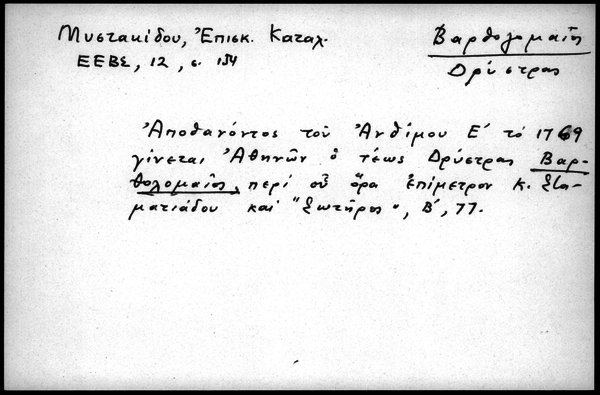 Μυστακίδου, Ἐπισκ. Καταλ.
ΕΕΒΣ, 12, σ. 154
Βαρθολομαῖος
Δρύστρας
Ἀποθανόντος τοῦ Ἀνθίμου Ε´ τὸ 1769
γίνεται Ἀθηνῶν ὁ τέως Δρύστρας Βαρ-
θολομαῖος, περὶ οὗ ὅρα ἐπίμετρον Κ. Στα-
ματιάδου καὶ "Σωτῆρος", Β´, 77.